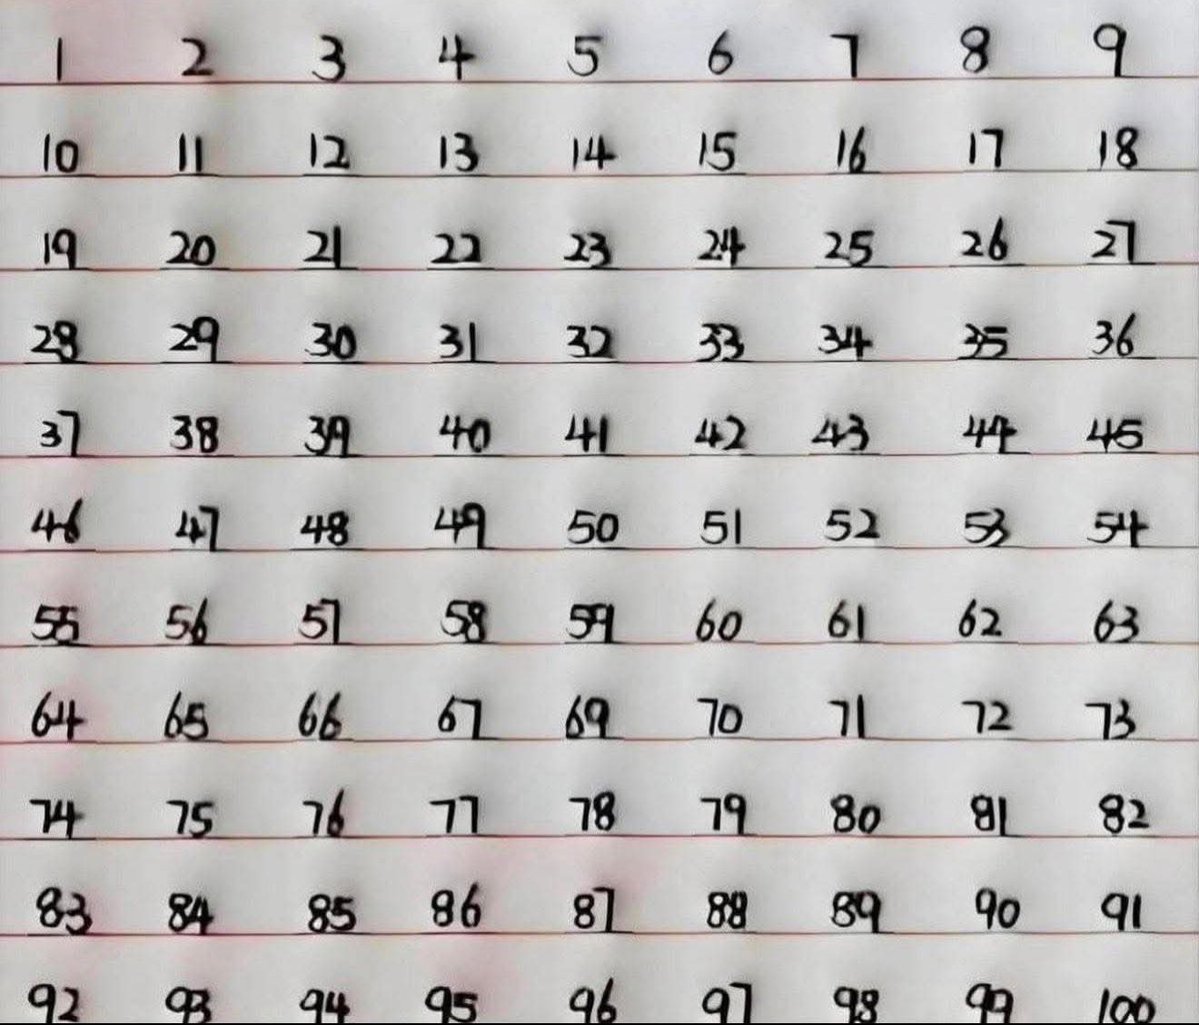 1 2 3 4 5 6 7 8 9
10 11 12 13 14 15 16 17 18
19 20 21 22 23 24 25 26 27
28 29 30 31 32 33 34 35 36
37 38 39 40 41 42 43 44 45
46 47 48 49 50 51 52 53 54
55 56 57 58 59 60 61 62 63
64 65 66 67 69 70 71 72 73
74 75 76 77 78 79 80 81 82
83 84 85 86 87 88 89 90 91
92 93 94 95 96 97 98 99 100